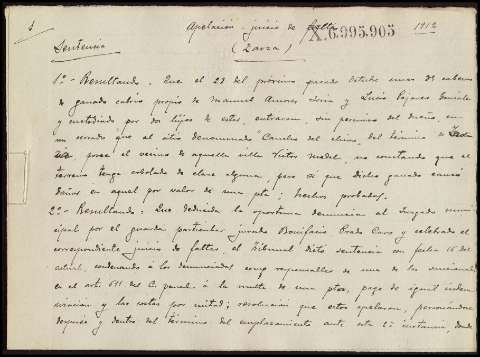 Apelacion juicio de faltas 1912
X.6.995.905
Sentencia
(Zarza)
1º - Resultando: Que el 23 del próximo pasado entraron unas 20 cabezas
de ganado cabrio propio de Manuel Amores y Lucio Pajares
y custodiado por dos hijos de estos, entraron, sin permiso del dueño, en
un cercado que al sitio denominado del término de
posee el vecino de aquella villa Victor Madel, no constando que el
terreno tenga cobrado de clase alguna, pero si que dicho ganado causó
daños en aquel por valor de una pta; hechos probados.
2º - Resultando: Que deducida la oportuna denuncia al Juzgado muni
cipal por el guarda particular jurado Bonifacio Prado Caro y celebrado el
correspondiente juicio de faltas el Tribunal dictó sentencia con fecha 16 del
actual, condenando á los denunciados como responsables de una de las
en el art 611 del C. penal á la multa de una pta, pago de igual indem
nización y las costas por mitad; resolucion que estos apelaron, personándose
después y dentro del término del emplazamiento ante esta 2ª instancia, donde